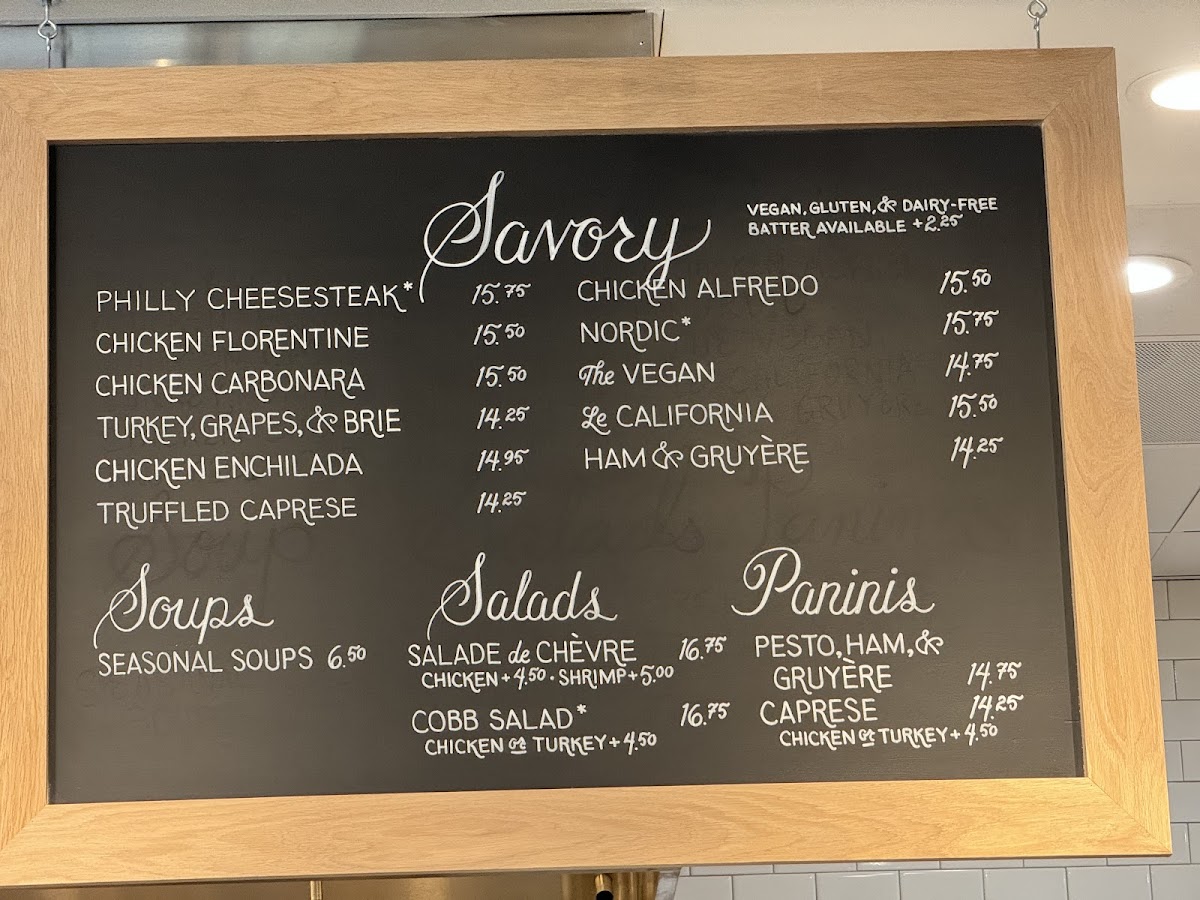 Savory
VEGAN, GLUTEN, & DAIRY-FREE
BATTER AVAILABLE +2.25
PHILLY CHEESESTEAK* 15.75
CHICKEN FLORENTINE 15.50
CHICKEN CARBONARA 15.50
TURKEY, GRAPES, & BRIE 14.25
CHICKEN ENCHILADA 14.95
TRUFFLED CAPRESE 14.25
CHICKEN ALFREDO 15.50
NORDIC* 15.75
The VEGAN 14.75
Le CALIFORNIA 15.50
HAM & GRUYÈRE 14.25
Soups
SEASONAL SOUPS 6.50
Salads
SALADE de CHÈVRE 16.75
CHICKEN +4.50 · SHRIMP +5.00
COBB SALAD* 16.75
CHICKEN or TURKEY +4.50
Paninis
PESTO, HAM, &
GRUYÈRE 14.75
CAPRESE 14.25
CHICKEN or TURKEY +4.50